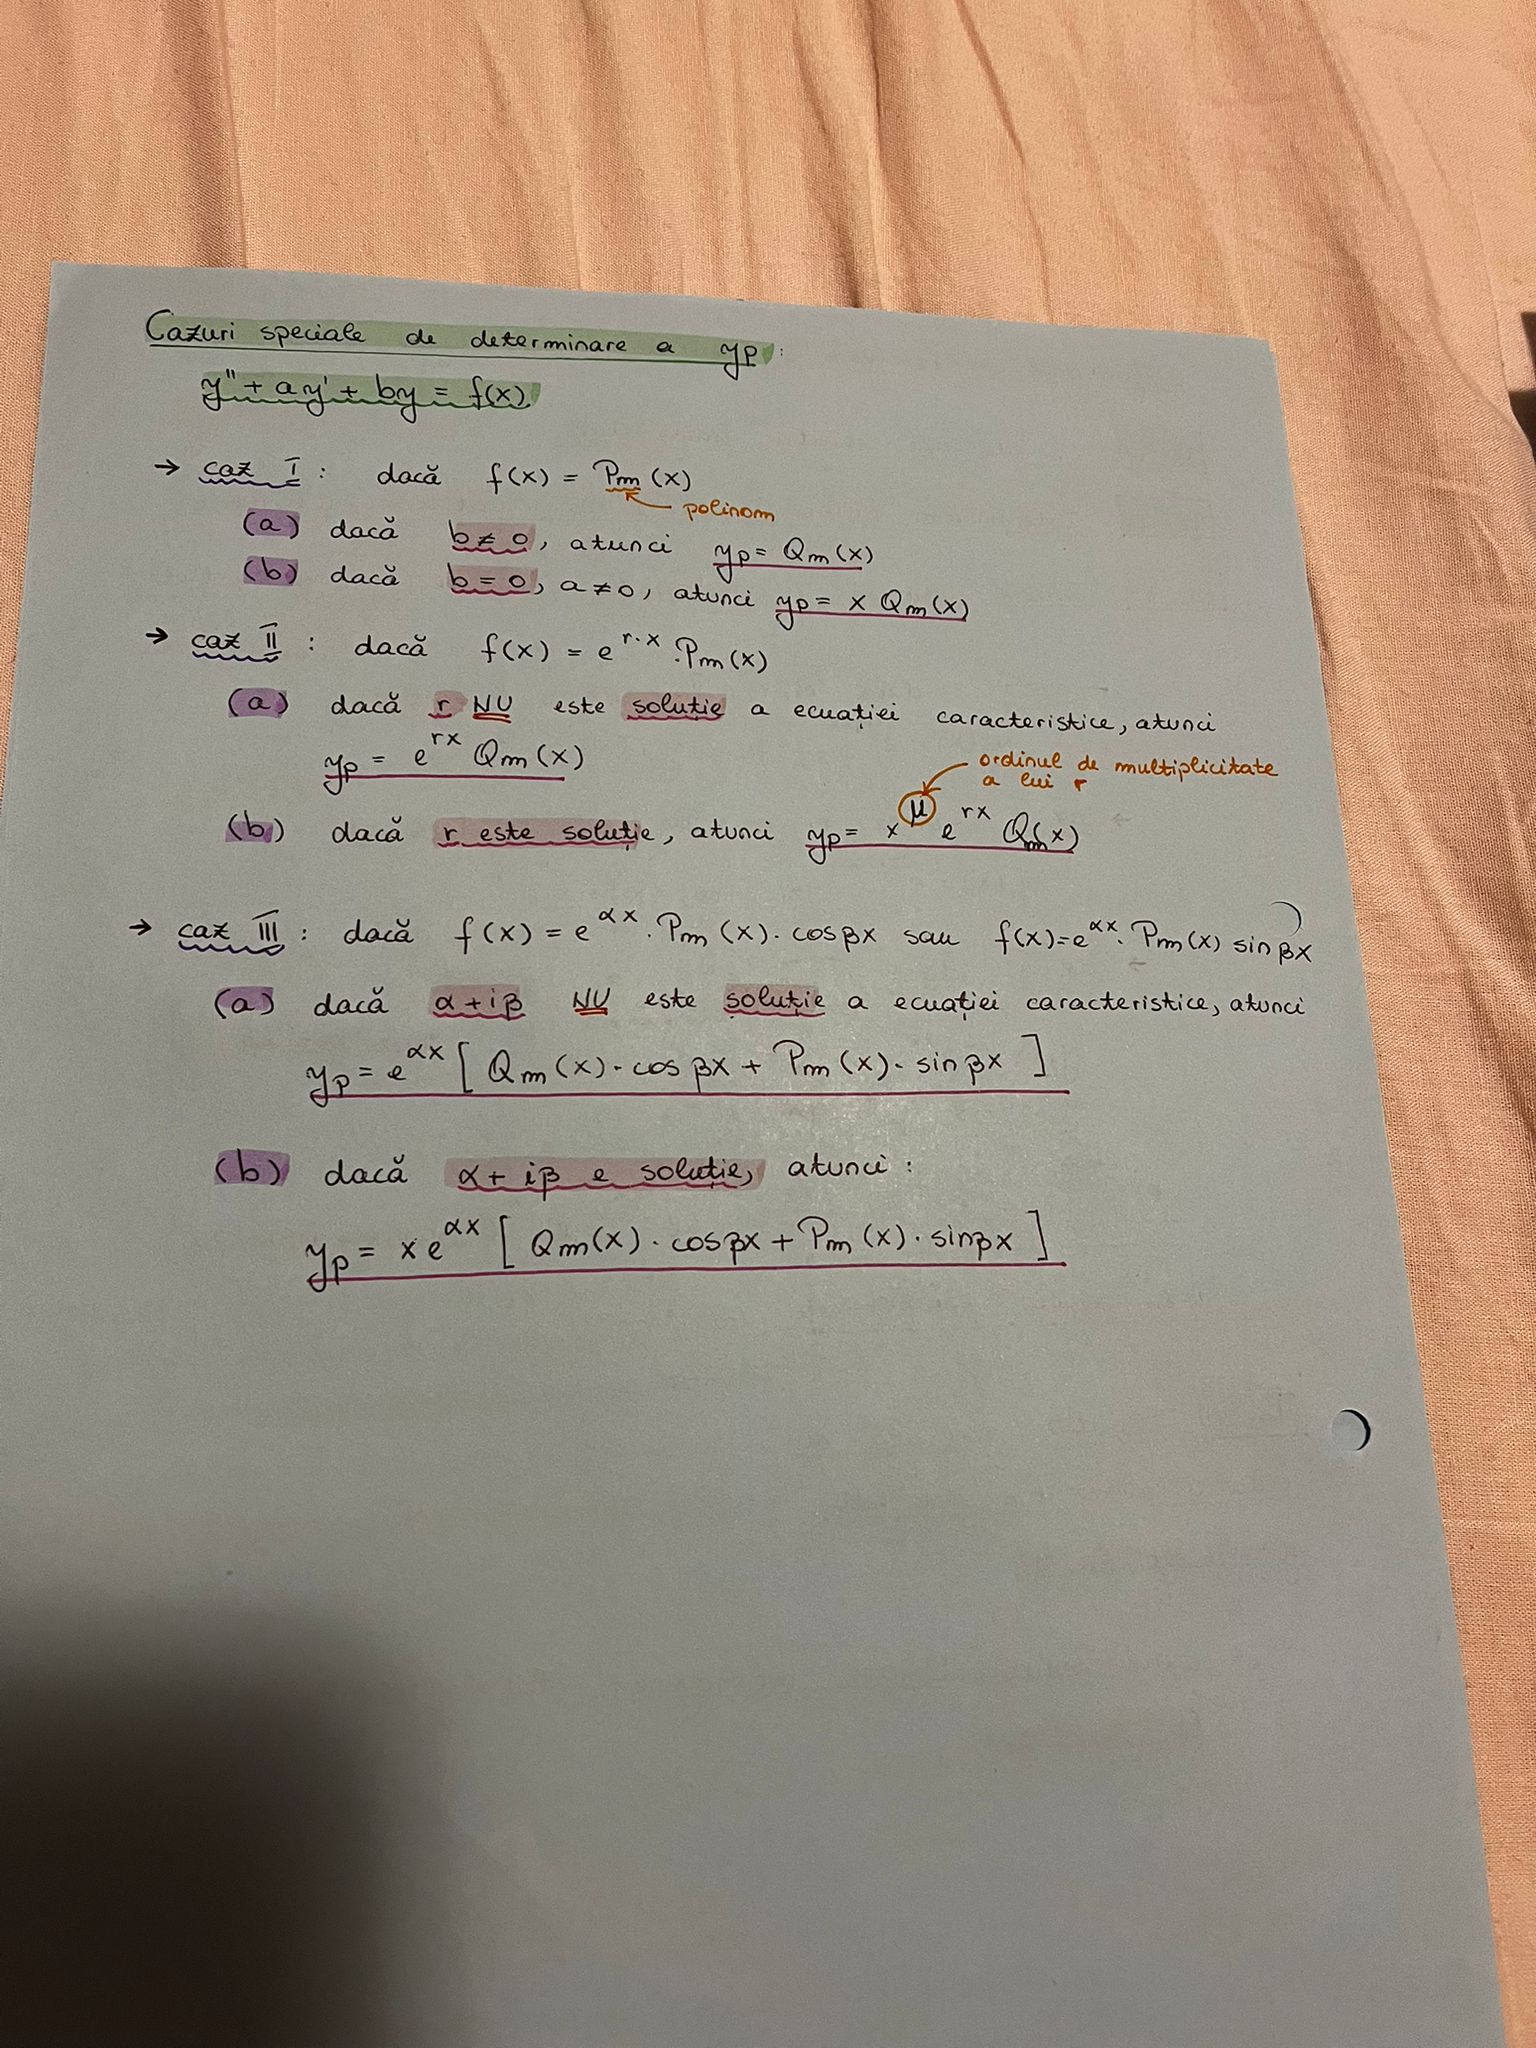 Cazuri speciale de determinare a yp:
y'' + ay' + by = f(x)
→ caz I : dacă f(x) = Pm(x)
polinom
(a) dacă b ≠ 0, atunci yp = Qm(x)
(b) dacă b = 0, a ≠ 0, atunci yp = x Qm(x)
→ caz II : dacă f(x) = e^(r·x) · Pm(x)
(a) dacă r NU este soluție a ecuației caracteristice, atunci
yp = e^(rx) Qm(x)
ordinul de multiplicitate
a lui r
(b) dacă r este soluție, atunci yp = x^μ e^(rx) Qm(x)
→ caz III : dacă f(x) = e^(αx) · Pm(x) · cos βx sau f(x) = e^(αx) · Pm(x) sin βx
(a) dacă α + iβ NU este soluție a ecuației caracteristice, atunci
yp = e^(αx) [ Qm(x) · cos βx + Pm(x) · sin βx ]
(b) dacă α + iβ e soluție, atunci :
yp = x e^(αx) [ Qm(x) · cos βx + Pm(x) · sin βx ]